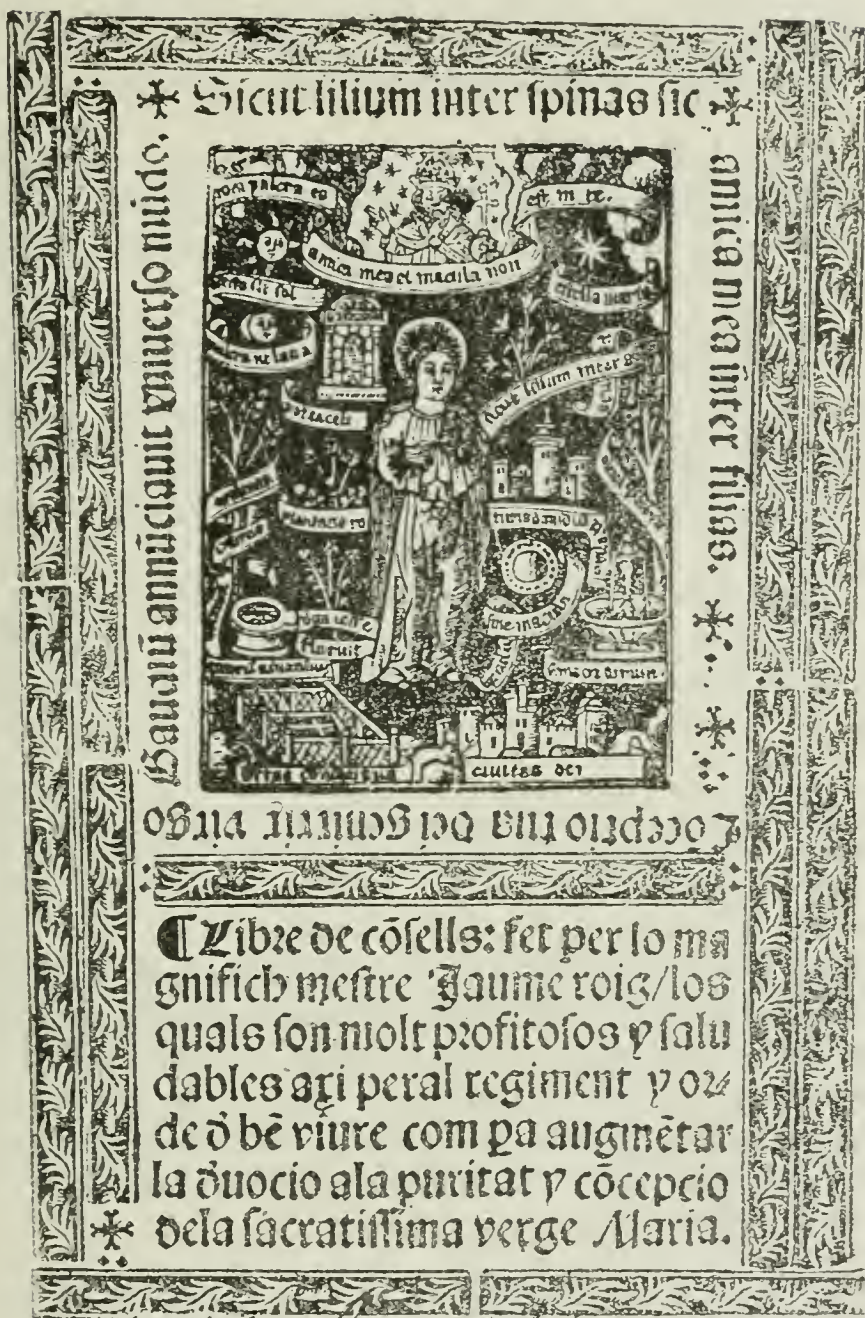 Sicut lilium inter spinas sic
amica mea inter filias.
Cōceptio tua dei genitrix virgo
Gaudiū annūciauit vniuerso mūdo.
est m te.
amica mea et macula non
stella maris
electa vt sol
lilium inter
porta celi
turris dauid
sine macula
floruit
ciuitas dei
¶ Libre de cōsells: fet per lo ma
gnifich mestre Jaume roig/los
quals son molt profitosos y salu
dables axi peral regiment y or⸗
de d̄ bē viure com ꝑa augmētar
la d̄uocio ala puritat y cōcepcio
dela sacratissima verge Maria.